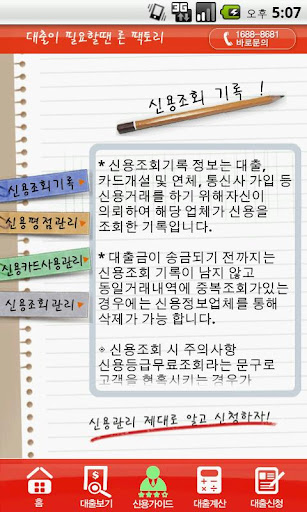 3G
오후 5:07
대출이 필요할땐 론 팩토리
1688-8681
바로문의
신용조회 기록 !
신용조회기록
신용평점관리
신용카드사용관리
신용조회관리
* 신용조회기록 정보는 대출,
카드개설 및 연체, 통신사 가입 등
신용거래를 하기 위해자신이
의뢰하여 해당 업체가 신용을
조회한 기록입니다.
* 대출금이 송금되기 전까지는
신용조회 기록이 남지 않고
동일거래내역에 중복조회가있는
경우에는 신용정보업체를 통해
삭제가 가능 합니다.
※ 신용조회 시 주의사항
신용등급무료조회라는 문구로
고객을 현혹시키는 경우가
신용관리 제대로 알고 신청하자!
홈
대출보기
신용가이드
대출계산
대출신청